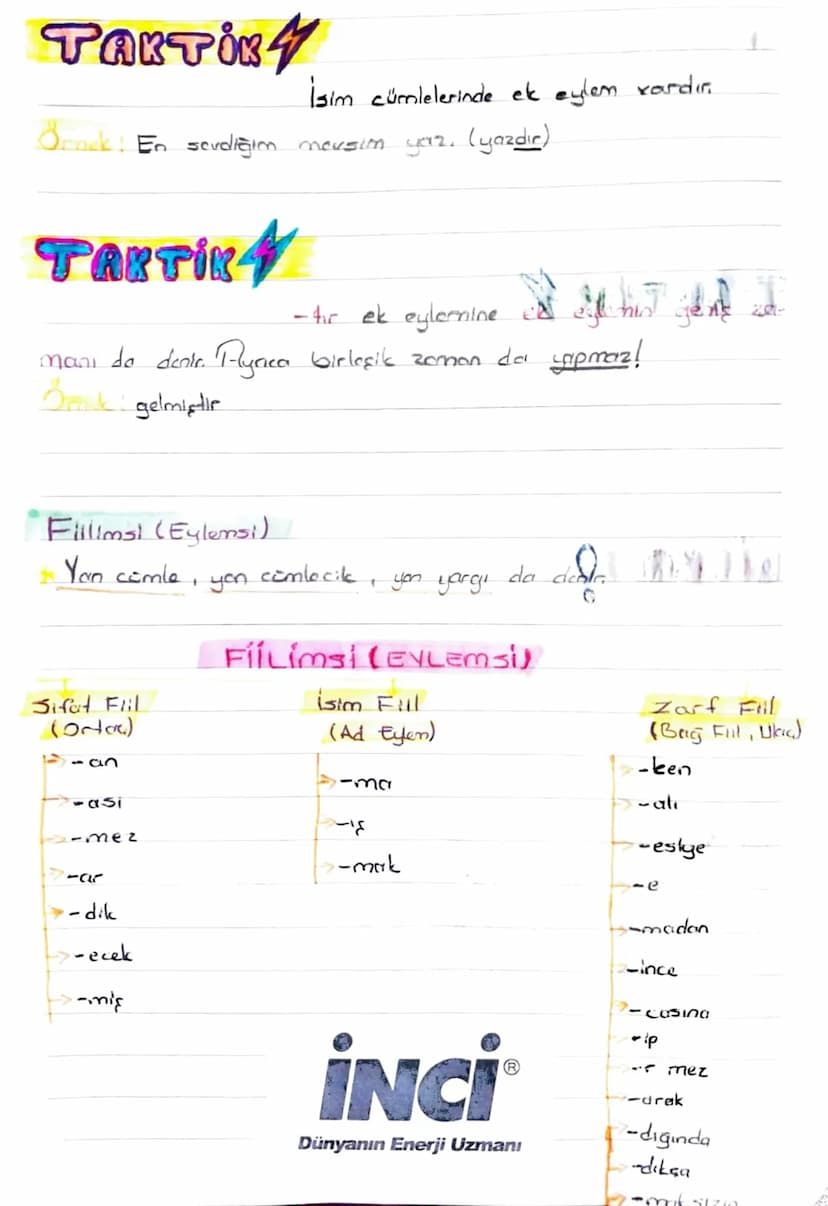 TAKTİK
İsim cümlelerinde ek eylem vardır.
Örnek: En sevdiğim mevsim yaz. (yazdır)
TAKTİK
-tır ek eylemine ek eylemin geniş za-
manı da denir. Ayrıca birleşik zaman da yapmaz!
Örnek: gelmiştir
Fiilimsi (Eylemsi)
Yan cümle, yan cümlecik, yan yargı da denir.
FİİLİMSİ (EYLEMSİ)
Sıfat Fiil İsim Fiil Zarf Fiil
(Ortaç) (Ad Eylem) (Bağ Fiil, Ulaç)
-an
-ası
-mez
-ar
-dik
-ecek
-miş
-ma
-ış
-mak
-ken
-alı
-esiye
-e
-madan
-ince
-casına
-ip
-r mez
-arak
-dığında
-dıkça
-maksızın
İNCİ®
Dünyanın Enerji Uzmanı